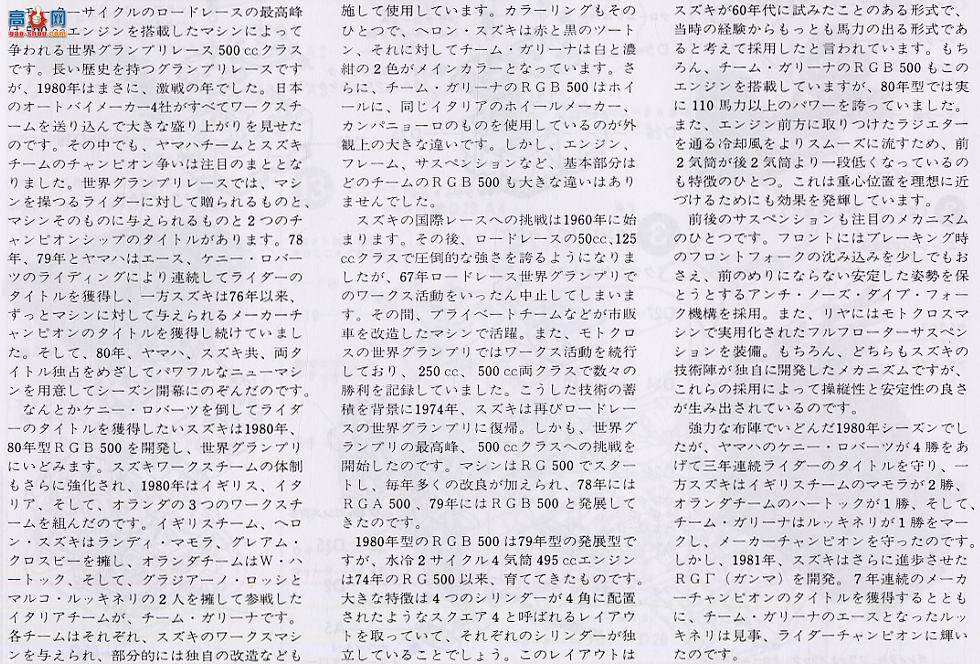 高手网
vao-shou.com
ーサイクルのロードレースの最高峰
エンジンを搭載したマシンによって
争われる世界グランプリレース500ccクラス
です。長い歴史を持つグランプリレースです
が、1980年はまさに、激戦の年でした。日本
のオートバイメーカー4社がすべてワークスチ
ームを送り込んで大きな盛り上がりを見せた
のです。その中でも、ヤマハチームとスズキ
チームのチャンピオン争いは注目のまととな
りました。世界グランプリレースでは、マシ
ンを操つるライダーに対して贈られるものと、
マシンそのものに与えられるものと2つのチ
ャンピオンシップのタイトルがあります。78
年、79年とヤマハはエース、ケニー・ロバー
ツのライディングにより連続してライダーの
タイトルを獲得し、一方スズキは76年以来、
ずっとマシンに対して与えられるメーカーチ
ャンピオンのタイトルを獲得し続けていまし
た。そして、80年、ヤマハ、スズキ共、両タ
イトル独占をめざしてパワフルなニューマシ
ンを用意してシーズン開幕にのぞんだのです。
なんとかケニー・ロバーツを倒してライダ
ーのタイトルを獲得したいスズキは1980年、
80年型RGB500を開発し、世界グランプリ
にいどみます。スズキワークスチームの体制
もさらに強化され、1980年はイギリス、イタ
リア、そして、オランダの3つのワークスチ
ームを組んだのです。イギリスチーム、ヘロ
ン・スズキはランディ・マモラ、グレアム・
クロスビーを擁し、オランダチームはW・ハ
ートック、そして、グラジアーノ・ロッシと
マルコ・ルッキネリの2人を擁して参戦した
イタリアチームが、チーム・ガリーナです。
各チームはそれぞれ、スズキのワークスマシ
ンを与えられ、部分的には独自の改造なども
施して使用しています。カラーリングもその
ひとつで、ヘロン・スズキは赤と黒のツート
ン、それに対してチーム・ガリーナは白と濃
紺の2色がメインカラーとなっています。さ
らに、チーム・ガリーナのRGB500はホイ
ールに、同じイタリアのホイールメーカー、
カンパニョーロのものを使用しているのが外
観上の大きな違いです。しかし、エンジン、
フレーム、サスペンションなど、基本部分は
どのチームのRGB500も大きな違いはあり
ませんでした。
スズキの国際レースへの挑戦は1960年に始
まります。その後、ロードレースの50cc、125
ccクラスで圧倒的な強さを誇るようになりま
したが、67年ロードレース世界グランプリで
のワークス活動をいったん中止してしまいま
す。その間、プライベートチームなどが市販
車を改造したマシンで活躍。また、モトクロ
スの世界グランプリではワークス活動を続行
しており、250cc、500cc両クラスで数々の
勝利を記録していました。こうした技術の蓄
積を背景に1974年、スズキは再びロードレー
スの世界グランプリに復帰。しかも、世界グ
ランプリの最高峰、500ccクラスへの挑戦を
開始したのです。マシンはRG500でスター
トし、毎年多くの改良が加えられ、78年には
RGA500、79年にはRGB500と発展して
きたのです。
1980年型のRGB500は79年型の発展型で
すが、水冷2サイクル4気筒495ccエンジン
は74年のRG500以来、育ててきたものです。
大きな特徴は4つのシリンダーが4角に配置
されたようなスクエア4と呼ばれるレイアウ
トを取っていて、それぞれのシリンダーが独
立していることでしょう。このレイアウトは
スズキが60年代に試みたことのある形式で、
当時の経験からもっとも馬力の出る形式であ
ると考えて採用したと言われています。もち
ろん、チーム・ガリーナのRGB500もこの
エンジンを搭載していますが、80年型では実
に110馬力以上のパワーを誇っていました。
また、エンジン前方に取りつけたラジエター
を通る冷却風をよりスムーズに流すため、前
2気筒が後2気筒より一段低くなっているの
も特徴のひとつ。これは重心位置を理想に近
づけるためにも効果を発揮しています。
前後のサスペンションも注目のメカニズム
のひとつです。フロントにはブレーキング時
のフロントフォークの沈み込みを少しでもお
さえ、前のめりにならない安定した姿勢を保
とうとするアンチ・ノーズ・ダイブ・フォー
ク機構を採用。また、リヤにはモトクロスマ
シンで実用化されたフルフローターサスペン
ションを装備。もちろん、どちらもスズキの
技術陣が独自に開発したメカニズムですが、
これらの採用によって操縦性と安定性の良さ
が生み出されているのです。
強力な布陣でいどんだ1980年シーズンでし
たが、ヤマハのケニー・ロバーツが4勝をあ
げて三年連続ライダーのタイトルを守り、一
方スズキはイギリスチームのマモラが2勝、
オランダチームのハートックが1勝、そして
チーム・ガリーナはルッキネリが1勝をマー
クし、メーカーチャンピオンを守ったのです。
しかし、1981年、スズキはさらに進歩させた
RGΓ（ガンマ）を開発。7年連続のメーカ
ーチャンピオンのタイトルを獲得するととも
に、チーム・ガリーナのエースとなったルッ
キネリは見事、ライダーチャンピオンに輝い
たのです。